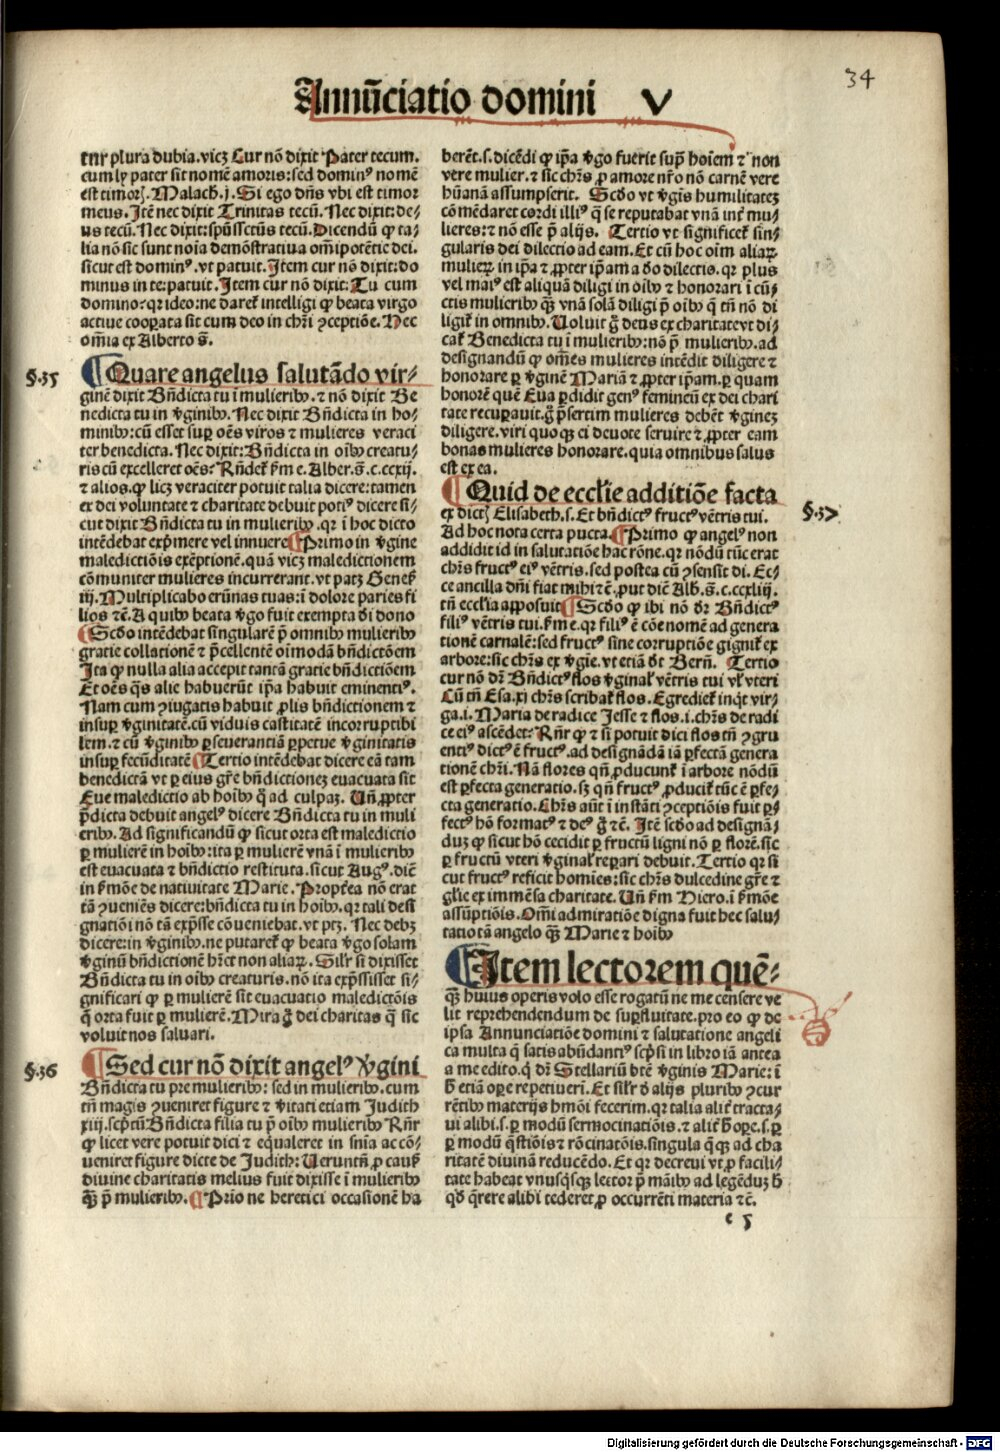 34
Annūciatio domini V
tur plura dubia. vicꝫ Cur nō dixit Pater tecum.
cum ly pater sit nomē amoris: sed dominꝰ nomē
est timorꝭ. Malach. j. Si ego dn̄s vbi est timor
meus. Itē nec dixit Trinitas tecū. Nec dixit: de⸗
us tecū. Nec dixit: spūssctūs tecū. Dicendū ꝙ ta⸗
lia nō sic sunt noīa demōstratiua om̄ipotētie dei.
sicut est dominꝰ. vt patuit. Item cur nō dixit: do
minus in te: patuit. Item cur nō dixit: Tu cum
domino: qr ideo: ne daret᷑ intelligi ꝙ beata virgo
actiue cooꝑata sit cum deo in chr̄i ꝯceptiōe. Hec
om̄ia ex Alberto s̄.
§.35
Quare angelus salutādo vir⸗
ginē dixit Bn̄dicta tu ī mulieribꝰ. ⁊ nō dixit Be
nedicta tu in v̓ginibꝰ. Nec dixit Bn̄dicta in ho⸗
minibꝰ: cū esset suꝑ oēs viros ⁊ mulieres veraci
ter benedicta. Nec dixit: Bn̄dicta in oībꝰ creatu⸗
ris cū excelleret oēs: Rn̄det᷑ ẜm e. Alber. s̄. c. ccxij.
⁊ alios. ꝙ licꝫ veraciter potuit talia dicere: tamen
ex dei voluntate ⁊ charitate debuit potiꝰ dicere si⸗
cut dixit Bn̄dicta tu in mulieribꝰ. qr ī hoc dicto
intēdebat exp̄mere vel innuere Primo in v̓gine
maledictiōis exēptionē. quā vicꝫ maledictionem
cōmuniter mulieres incurrerant. vt patꝫ Geneꝭ
iij. Multiplicabo erūnas tuas: ī dolore paries fi
lios ⁊c̄. A quibꝰ beata v̓go fuit exempta dī dono
Scd̓o intēdebat singularē p̄ omnibꝰ mulieribꝰ
gratie collationē ⁊ p̄cellentē oīmodā bn̄dictōem
Ita ꝙ nulla alia accepit tantā gratie bn̄dictiōem
Et oēs q̄s alie habuerūt ip̄a habuit eminentiꝰ.
Nam cum ꝯiugatis habuit ꝓlis bn̄dictionem ⁊
insuꝑ v̓ginitatē. cū viduis castitatē incorruptibi
lem. ⁊ cū v̓ginibꝰ ꝑseuerantiā ꝑpetue v̓ginitatis
insuꝑ fecūditatē Tertio intēdebat dicere eā tam
benedictā vt ꝑ eius gr̄e bn̄dictionez euacuata sit
Eue maledictio ab hoībꝰ q̄ ad culpaꝫ. Un̄ ꝓpter
p̄dicta debuit angelꝰ dicere Bn̄dicta tu in muli
eribꝰ. Ad significandū ꝙ sicut orta est maledictio
ꝑ mulierē in hoībꝰ: ita ꝑ mulierē vnā ī mulieribꝰ
est euacuata ⁊ bn̄dictio restituta. sicut Augꝰ. diē
in ẜmōe de natiuitate Marie. Propt̓ea nō erat
tā ꝯueniēs dicere: bn̄dicta tu in hoībꝰ. qr tali desi
gnatiōi nō tā exp̄sse cōueniebat. vt ptꝫ. Nec debꝫ
dicere: in v̓ginibꝰ. ne putaret᷑ ꝙ beata v̓go solam
v̓ginū bn̄dictionē hr̄et ⁊ non aliaꝝ. Silr̄ si dixisset
Bn̄dicta tu in oībꝰ creaturis. nō ita exp̄ssisset si⸗
gnificari ꝙ ꝑ mulierē sit euacuatio maledictōis
q̄ orta fuit ꝑ mulierē. Mira g̊ dei charitas q̄ sic
voluit nos saluari.
§.36
Sed cur nō dixit angelꝰ v̓gini
Bn̄dicta tu pre mulieribꝰ: sed in mulieribꝰ. cum
tn̄ magis ꝯueniret figure ⁊ v̓itati etiam Judith
xiij. scp̄tū: Bn̄dicta filia tu p̄ oībꝰ mulieribꝰ Rn̄r
ꝙ licet vere potuit dici ⁊ eq̄ualeret in sn̄ia ac cō⸗
ueniret figure dicte de Judith: Ueruntn̄ ꝓ cauẜ
diuine charitatis melius fuit dixisse ī mulieribꝰ
q̄ꝫ p̄ mulieribꝰ. Prīo ne heretici occasionē ha
berēt. s. dicēdi ꝙ ip̄a v̓go fuerit sup̄ hoīem ⁊ non
vere mulier. ⁊ sic chr̄s ꝓ amore nr̄o nō carnē vere
hūanā assumpserit. Scd̓o vt v̓gīs humilitatez
cōmēdaret cordi illiꝰ q̄ se reputabat vnā int̓ mu⸗
lieres: ⁊ nō esse p̄ alijs. Tertio vt significet᷑ sin⸗
gularis dei dilectio ad eam. Et cū hoc oīm aliaꝝ
mulieꝝ in ip̄a ⁊ ꝓpter ip̄am a d̓o dilectis. qr plus
vel maiꝰ est aliquā diligi in oībꝰ ⁊ honorari ī cū⸗
ctis mulieribꝰ q̄ꝫ vnā solā diligi p̄ oībꝰ q̄ tn̄ nō di
ligit᷑ in omnibꝰ. Uoluit g̊ deus ex charitate vt di⸗
cat᷑ Benedicta tu ī mulieribꝰ: nō p̄ mulieribꝰ. ad
designandū ꝙ om̄es mulieres intēdit diligere ⁊
honorare ꝑ v̓ginē Mariā ⁊ ꝓpter ip̄am. ꝑ quam
honorē quē Eua ꝑdidit genꝰ femineū ex dei chari
tate recuꝑauit. g̊ p̄sertim mulieres debēt v̓ginez
diligere. viri quoqꝫ ei deuote seruire ⁊ ꝓpter eam
bonas mulieres honorare. quia omnibus salus
est ex ea.
§.37
Quid de eccl̄ie additiōe facta
ex dictꝭ Elisabeth. s. Et bn̄dictꝰ fructꝰ vētris tui.
Ad hoc nota certa pūcta. Primo ꝙ angelꝰ non
addidit id in salutatiōe hac rōne. qr nōdū tūc erat
chr̄s fructꝰ eiꝰ vētris. sed postea cū ꝯsensit di. Ec⸗
ce ancilla dn̄i fiat mihi ⁊c̄. ꝓut diē Alb̓. s̄. c. ccxliij.
tn̄ eccl̄ia apposuit Scd̓o ꝙ ibi nō d̓r Bn̄dictꝰ
filiꝰ vētris tui. ẜm e. qr filiꝰ ē cōe nomē ad genera
tionē carnalē: sed fructꝰ sine corruptiōe gignit᷑ ex
arbore: sic chr̄s ex v̓gīe. vt etiā d̓t Bern̄. Tertio
cur nō dr̄ Bn̄dictꝰ flos v̓ginal̓ vētris tui vl̓ vteri
Cū tn̄ Esa. xi chr̄s scribat᷑ flos. Egrediet᷑ inqt vir⸗
ga. i. Maria de radice Jesse ⁊ flos. i. chr̄s de radi
ce eiꝰ ascēdet: Rn̄r ꝙ ⁊ si potuit dici flos tn̄ ꝯgru
entiꝰ dictꝰ ē fructꝰ. ad designādā īā ꝑfectā genera
tionē chr̄i. Nā flores qn̄ ꝓducunt᷑ ī arbore nōdū
est ꝑfecta generatio. sꝫ qn̄ fructꝰ ꝓducit᷑ tūc ē ꝑfe⸗
cta generatio. Chr̄s aūt ī instāti ꝯceptiōis fuit ꝑ⸗
fectꝰ hō formatꝰ ⁊ deꝰ g̊ ⁊c̄. Itē scd̓o ad designā⸗
duꝫ ꝙ sicut hō cecidit ꝑ fructū ligni nō ꝑ florē. sic
ꝑ fructū vteri v̓ginal̓ reꝑari debuit. Tertio qr si
cut fructꝰ reficit homīes: sic chr̄s dulcedine gr̄e ⁊
gl̄ie ex immēsa charitate. Un̄ ẜm Hiero. ī ẜmōe
assūptiōis. Om̄i admiratiōe digna fuit hec salu⸗
tatio tā angelo q̄ꝫ Marie ⁊ hoībꝰ
Item lectorem quē⸗
q̄ꝫ huius operis volo esse rogatū ne me censere ve
lit reprehendendum de suꝑfluitate. pro eo ꝙ de
ipsa Annunciatiōe domini ⁊ salutatione angeli
ca multa q̄ satis abūdantꝰ scp̄si in libro iā antea
a me edito. q̄ dr̄ Stellariū bt̄e v̓ginis Marie: ī
h̓ etiā oꝑe repetiuerī. Et silr̄ d̓ alijs pluribꝰ ꝯcur
rētibꝰ materijs hmōi fecerim. qr talia alit̓ tracta⸗
ui alibi. s. ꝑ modū sermocinatiōis. ⁊ alit̓ h̓ oꝑe. s. ꝑ
ꝑ modū q̄stiōis ⁊ rōcinatōis. singula q̄qꝫ ad cha
ritatē diuinā reducēdo. Et qr decreui vt ꝓ facili⸗
tate habeat vnusq̄sqꝫ lector p̄ māibꝰ ad legēduꝫ h̓
qd̓ q̄rere alibi tederet ꝓ occurrēti materia ⁊c̄.
c 5
Digitalisierung gefördert durch die Deutsche Forschungsgemeinschaft - DFG